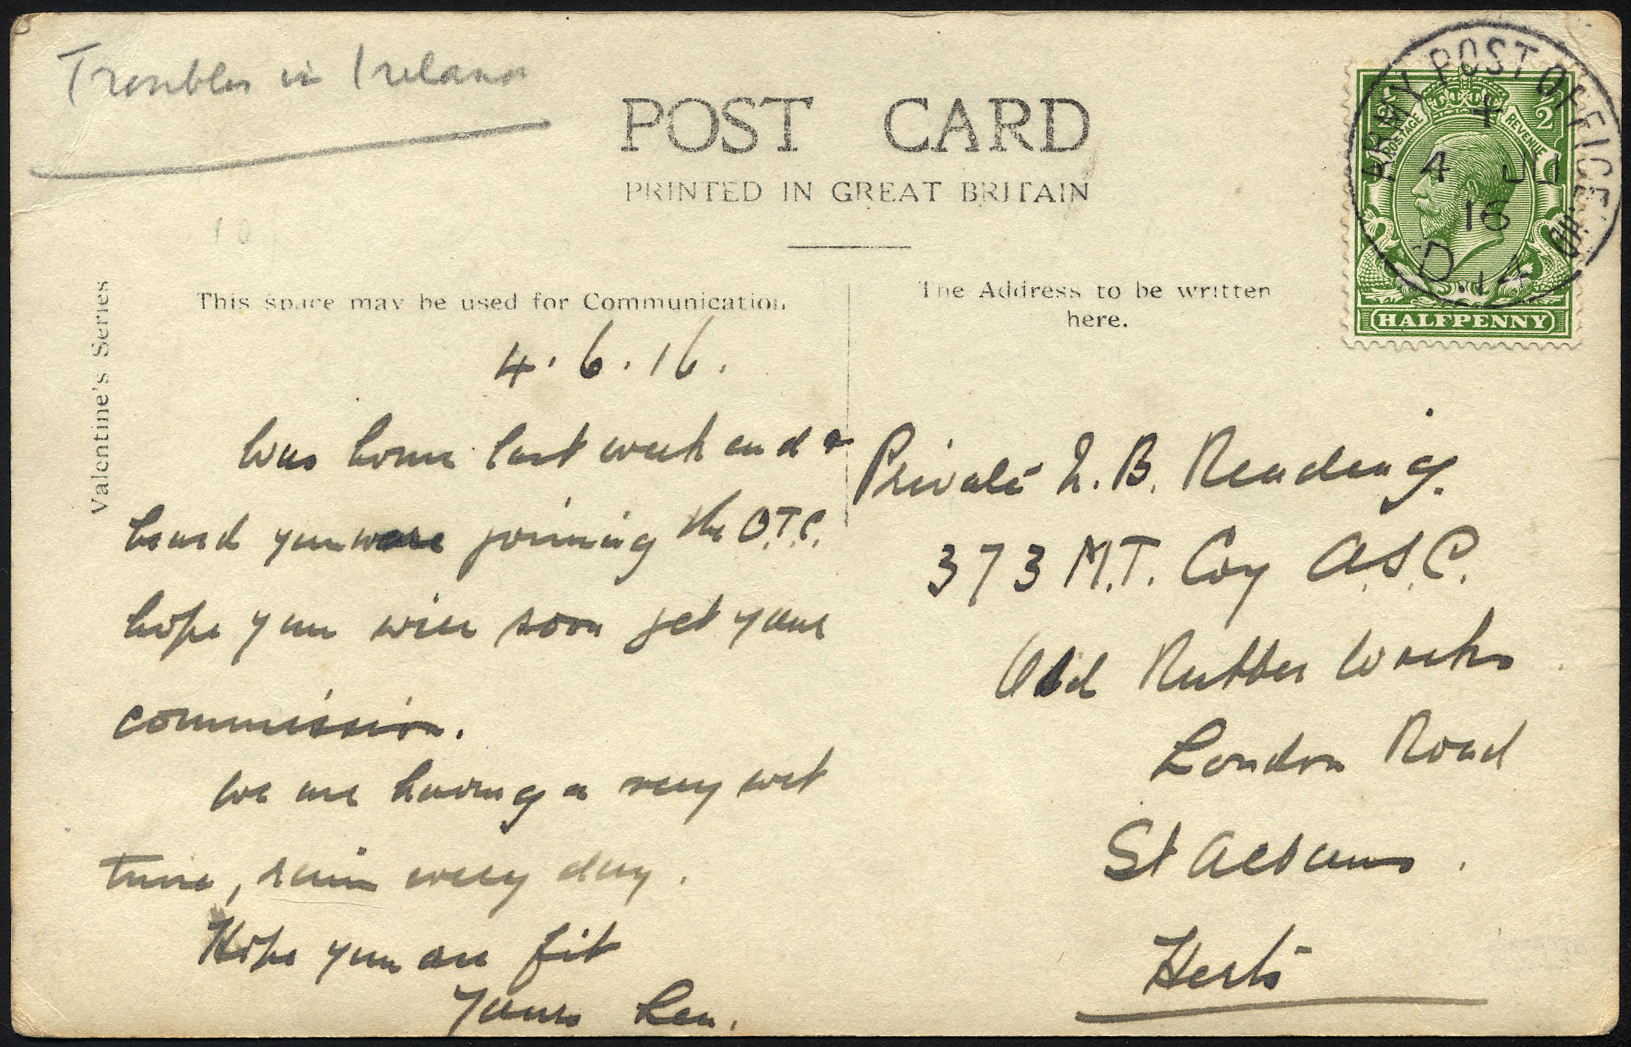 Troubles in Ireland
POST CARD
PRINTED IN GREAT BRITAIN
Valentine's Series
This space may be used for Communication.
The Address to be written
here.
ARMY POST OFFICE
4 JU
16
D.14
POSTAGE REVENUE
HALFPENNY
4.6.16.
Was home last week end &
heard you were joining the O.T.C.
hope you will soon get your
commission.
We are having a very wet
time, rain every day.
Hope you are fit
Yours Len.
Private L. B. Reading.
373 M.T. Coy A.S.C.
Old Rubber Works
London Road
St Albans.
Herts